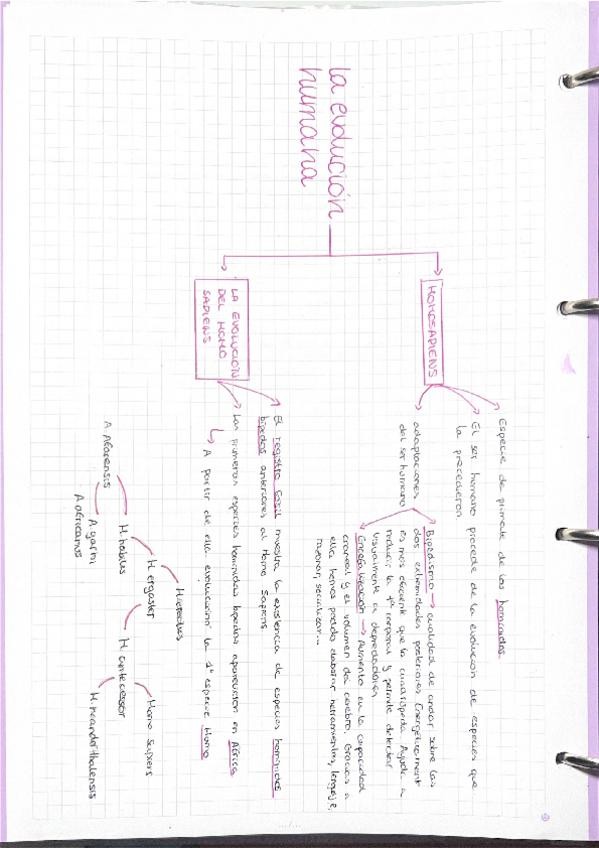 la evolución
humana
HOMOSAPIENS
Especie de primate de los homínidos.
El ser humano procede de la evolución de especies que
la precedieron
adaptaciones
del ser humano
Bipedismo → cualidad de andar sobre las
dos extremidades posteriores. Energéticamente
es más eficiente que la cuadrúpeda. Ayuda a
reducir la tª corporal y permite detectar
visualmente a depredadores
Encefalización → Aumento en la capacidad
craneal y el volumen del cerebro. Gracias a
ella hemos podido elaborar herramientas, lenguaje,
razonar, socializar...
LA EVOLUCION
DEL HOMO
SAPIENS
El registro fósil muestra la existencia de especies homínidas
bípedas anteriores al Homo Sapiens
Las primeras especies homínidas bípedas aparecieron en África
↳ A partir de ella evolucionó la 1ª especie Homo
A. afarensis
A. garhi
A. africanus
H. habilis
H. ergaster
H. erectus
H. antecessor
Homo Sapiens
H. neanderthalensis